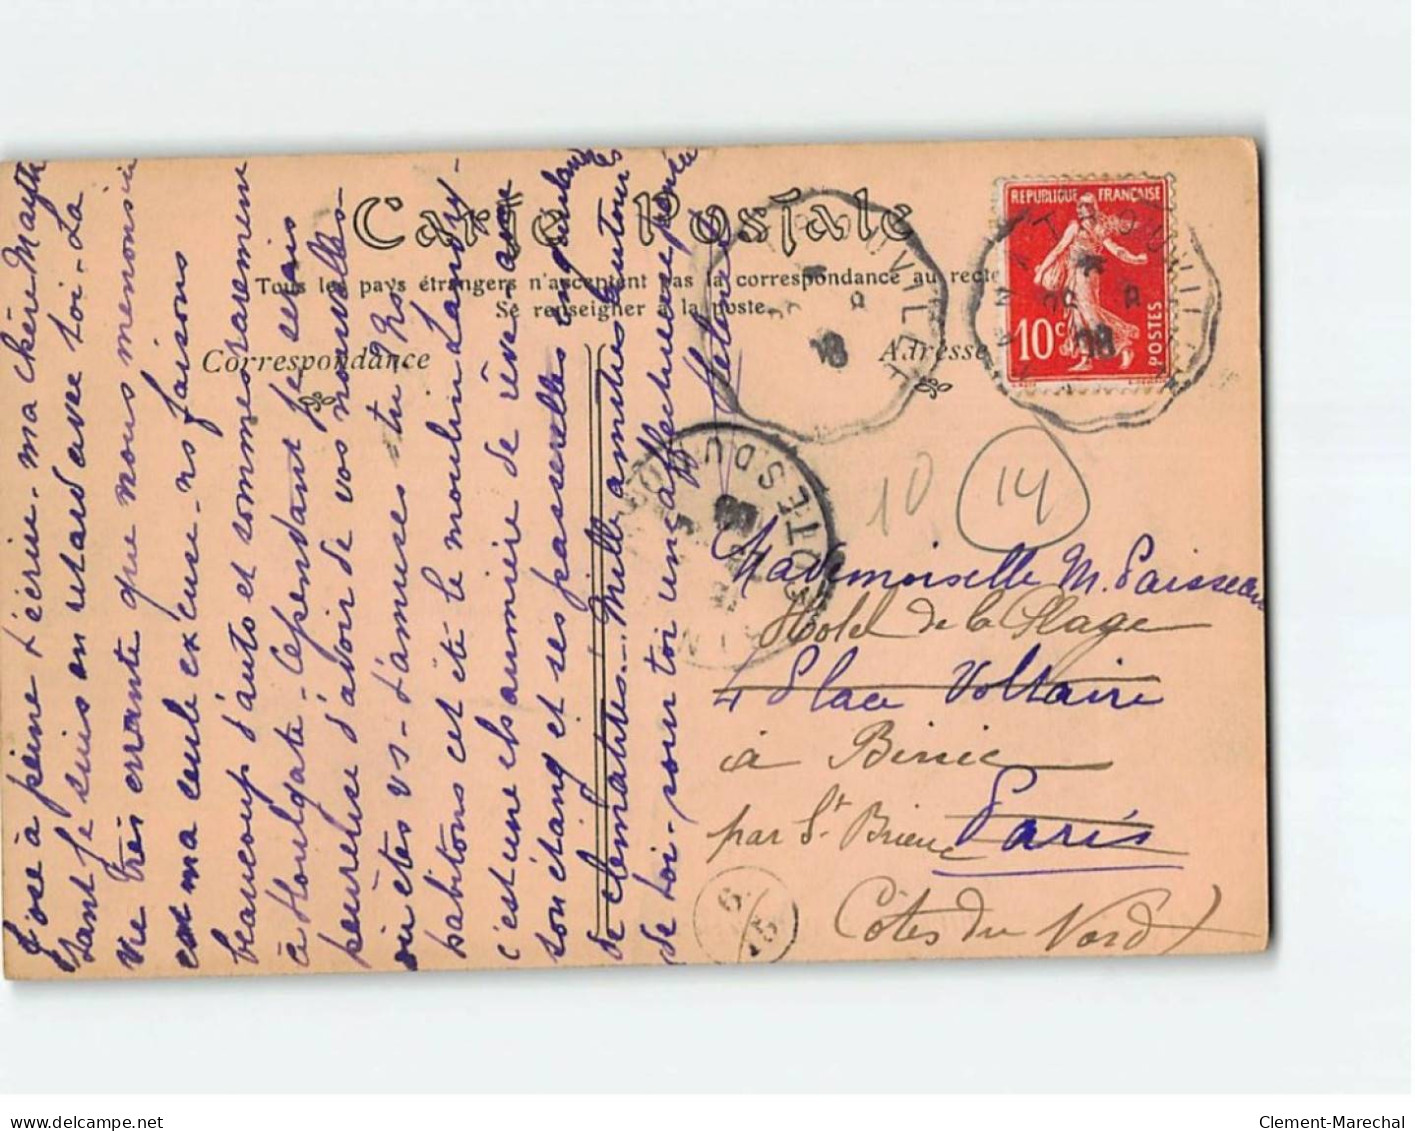 Carte Postale
Tous les pays étrangers n'acceptent pas la correspondance au recto
Se renseigner à la poste.
Correspondance
Adresse
REPUBLIQUE FRANÇAISE
10c
POSTES
TROUVILLE
08
TROUVILLE
08
COTES DU NORD
10
14
J'ose à peine t'écrire. ma chère Mayth
tant je suis en retard avec toi. La
vie très errante que nous menons ici
est ma seule excuse. ns faisons
beaucoup d'auto et sommes rarement
à Houlgate. Cependant je serais
heureuse d'avoir de vos nouvelles.
où êtes vs. t'amuses tu? Ns
habitons cet été le moulin Landry.
c'est une chaumière de rêve avec
son étang et ses passerelles enguirlandées
de clématites. Mille amitiés autour
de toi. pour toi une affectueuse pensée
Mademoiselle M. Paisseau
Hotel de la Plage
4 Place Voltaire
à Binic
par St Brieuc
Paris
Côtes du Nord
6
15
delcampe.net
Clement-Marechal